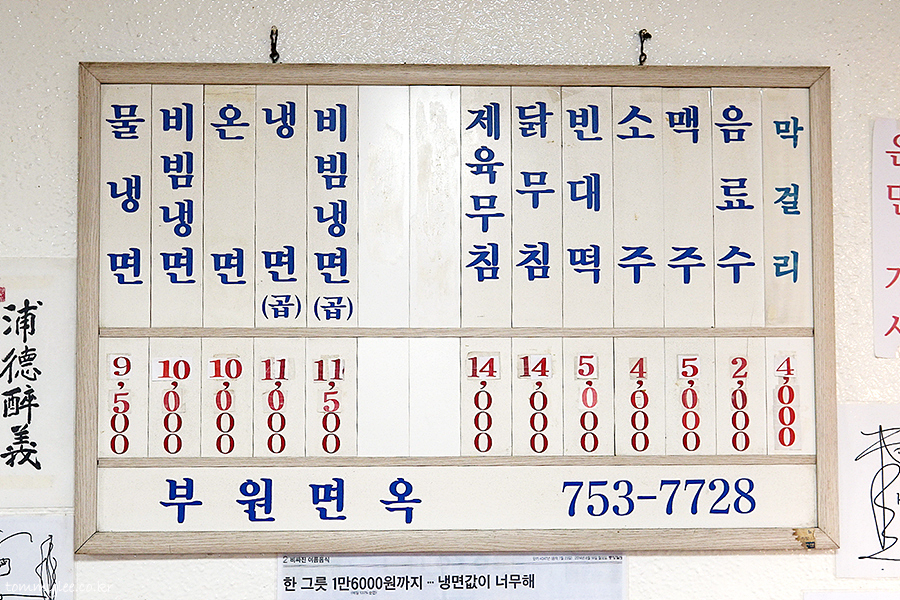 물냉면
비빔냉면
온면
냉면(곱)
비빔냉면(곱)
제육무침
닭무침
빈대떡
소주
맥주
음료수
막걸리
9,500
10,000
10,000
11,000
11,500
14,000
14,000
5,000
4,000
5,000
2,000
4,000
부원면옥 753-7728
浦德醉義
2 비싸진 여름음식
한 그릇 1만6000원까지 … 냉면값이 너무해